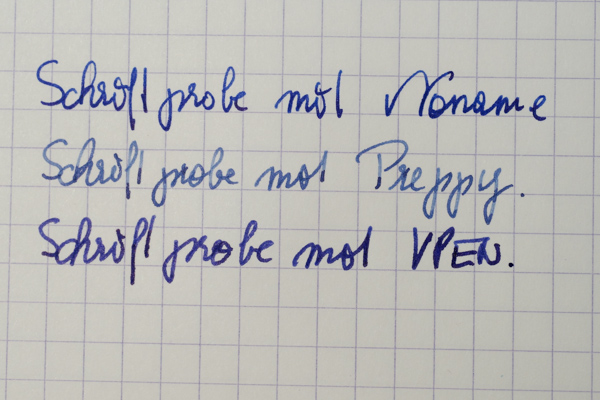 Schriftprobe mit Noname
Schriftprobe mit Preppy.
Schriftprobe mit VPEN.